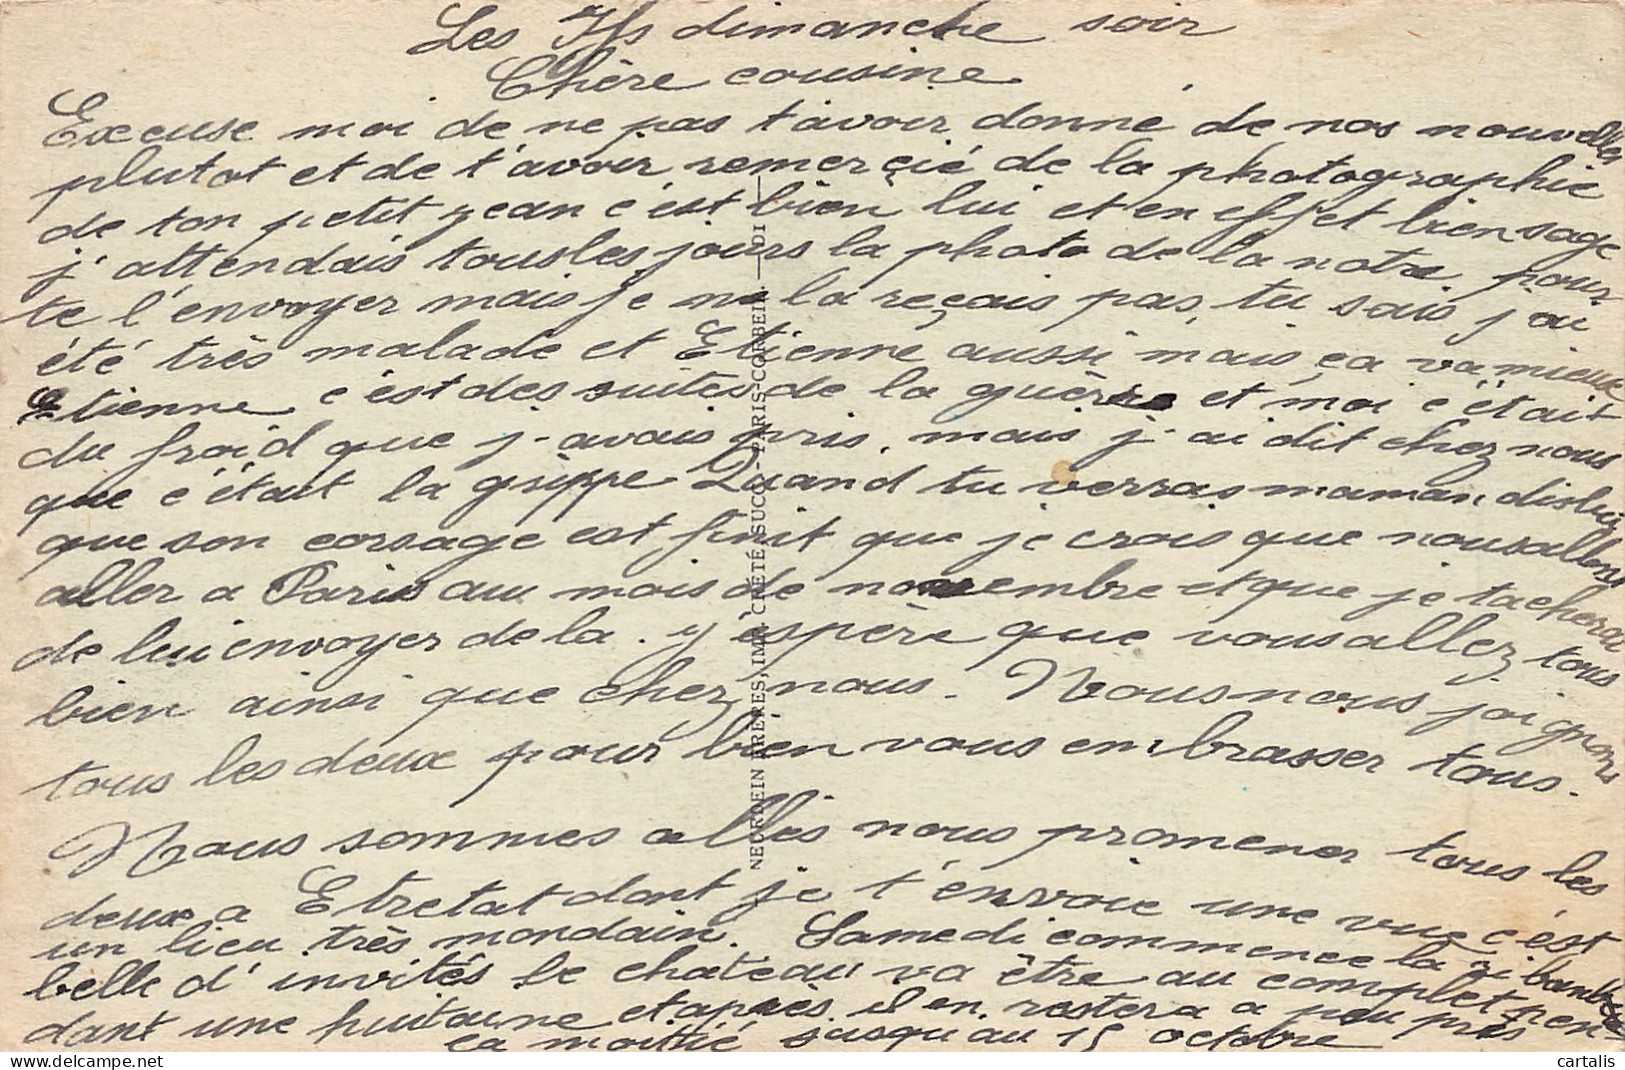 Les Ifs dimanche soir
Chère cousine
Excuse moi de ne pas t'avoir donné de nos nouvelles
plutot et de t'avoir remerçié de la photographie
de ton petit jean c'est bien lui et en effet bien sage
j'attendais tous les jours la photo de la notre pour
te l'envoyer mais je ne la reçois pas, tu sais j'ai
été très malade et Etienne aussi mais ça va mieux
Etienne c'est des suites de la guèrre et moi c'était
du froid que j'avais pris, mais j'ai dit chez nous
que c'était la grippe Quand tu verras maman dis lui
que son corsage est finit que je crois que nous allons
aller a Paris au mois de novembre et que je tacherai
de lui envoyer de la. j'espère que vous allez tous
bien ainsi que chez nous. Nous nous joignons
tous les deux pour bien vous embrasser tous.
Nous sommes allés nous promener tous les
deux a Etretat dont je t'envoie une vue c'est
un lieu très mondain. Samedi commence la ribambelle
belle d'invités le chateau va être au complet pen-
dant une huitaine et après il en restera a peu près
la moitié jusqu'au 15 octobre
NEURDEIN FRÈRES, IMP. CRÉTÉ, SUCC. - PARIS-CORBEIL.
cartalis